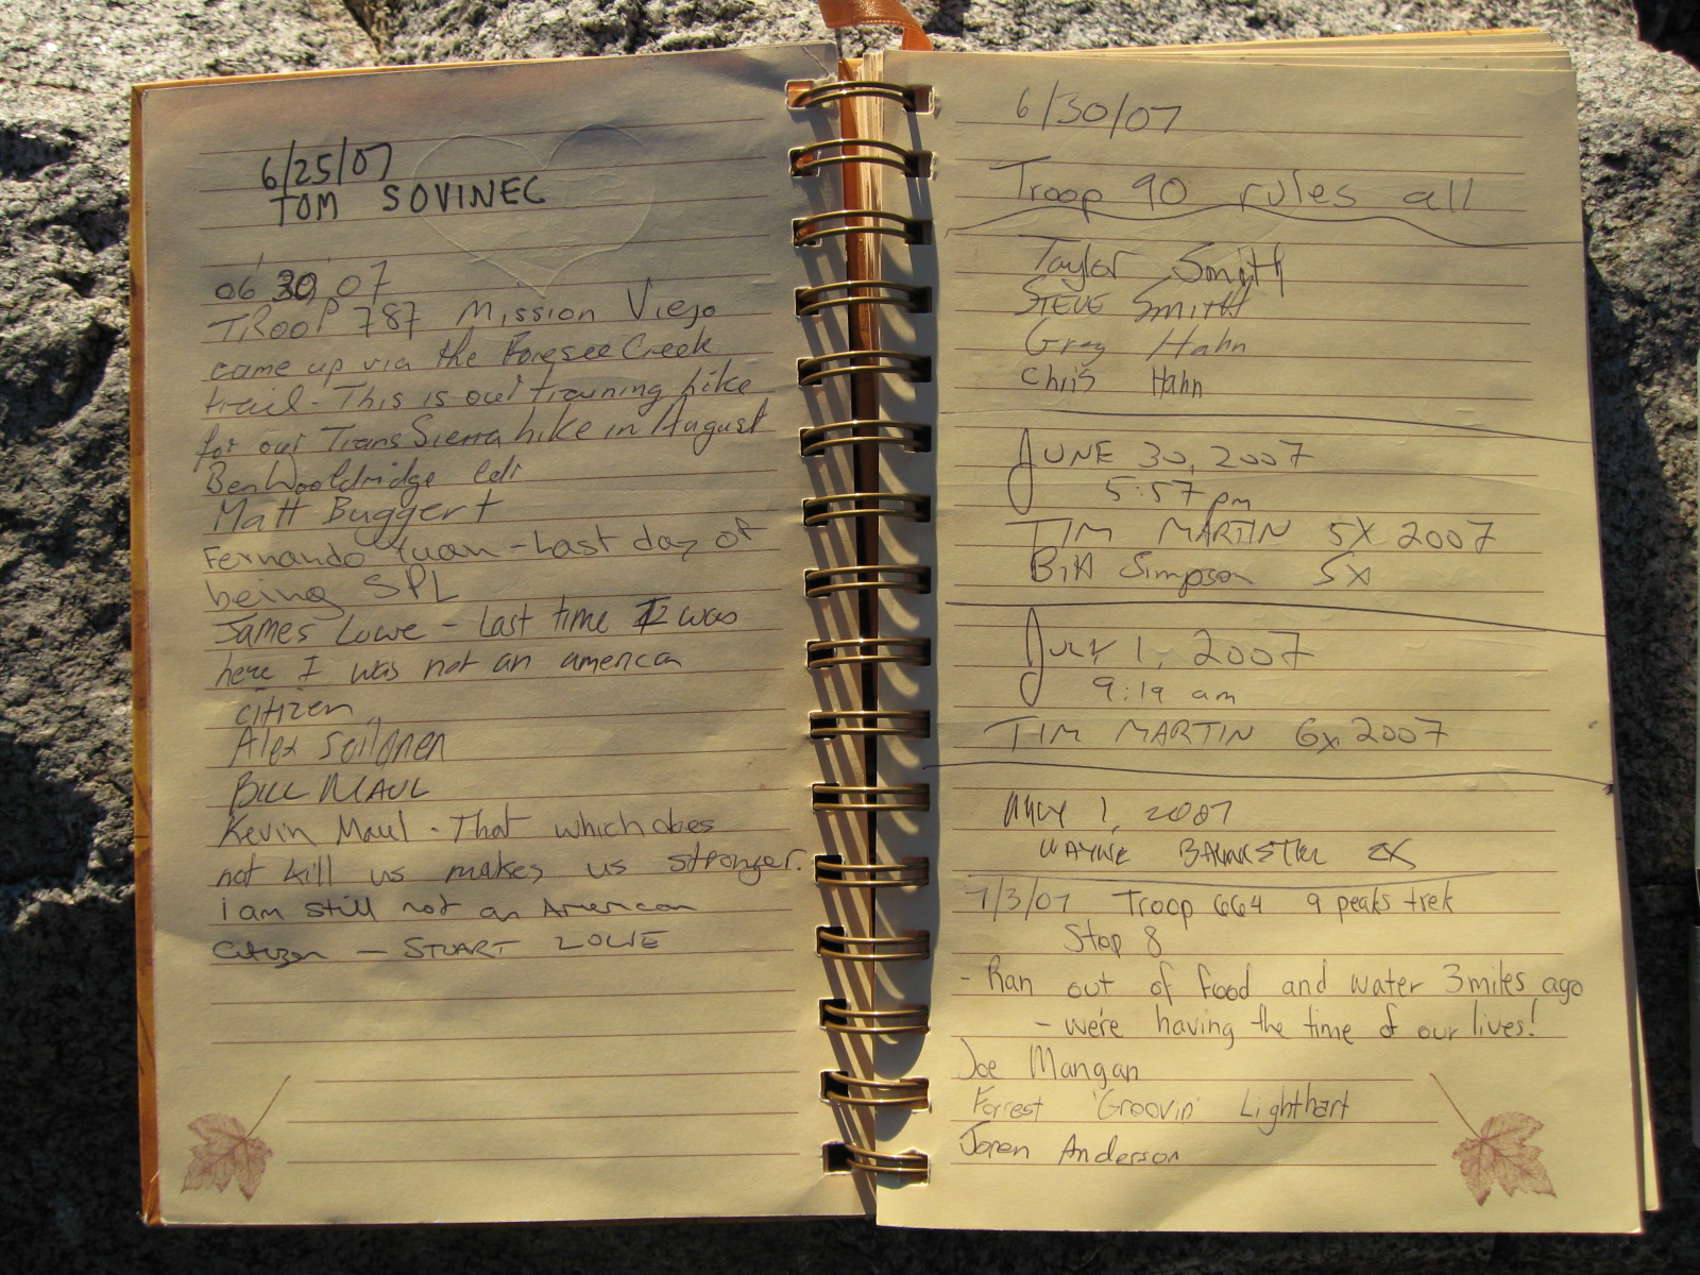 6/25/07
TOM SOVINEC
06 30 07
TROOP 787 Mission Viejo
came up via the Foresee Creek
trail - This is our training hike
for our Trans Sierra hike in August
Ben Wooldridge
Matt Buggert
Fernando Yuan - Last day of
being SPL
James Lowe - Last time I was
here I was not an american
citizen
Alex
BILL MAUL
Kevin Maul - That which does
not kill us makes us stronger.
i am still not an American
Citizen - STUART LOWE
6/30/07
Troop 90 rules all
Taylor Smith
STEVE Smith
Greg Hahn
Chris Hahn
JUNE 30, 2007
5:57 pm
TIM MARTIN 5X 2007
Bill Simpson 5x
JULY 1, 2007
9:19 am
TIM MARTIN 6x 2007
JULY 1, 2007
WAYNE
7/3/07 Troop 664 9 peaks trek
Stop 8
- Ran out of food and water 3 miles ago
- we're having the time of our lives!
Joe Mangan
Forrest 'Groovin' Lighthart
Joren Anderson